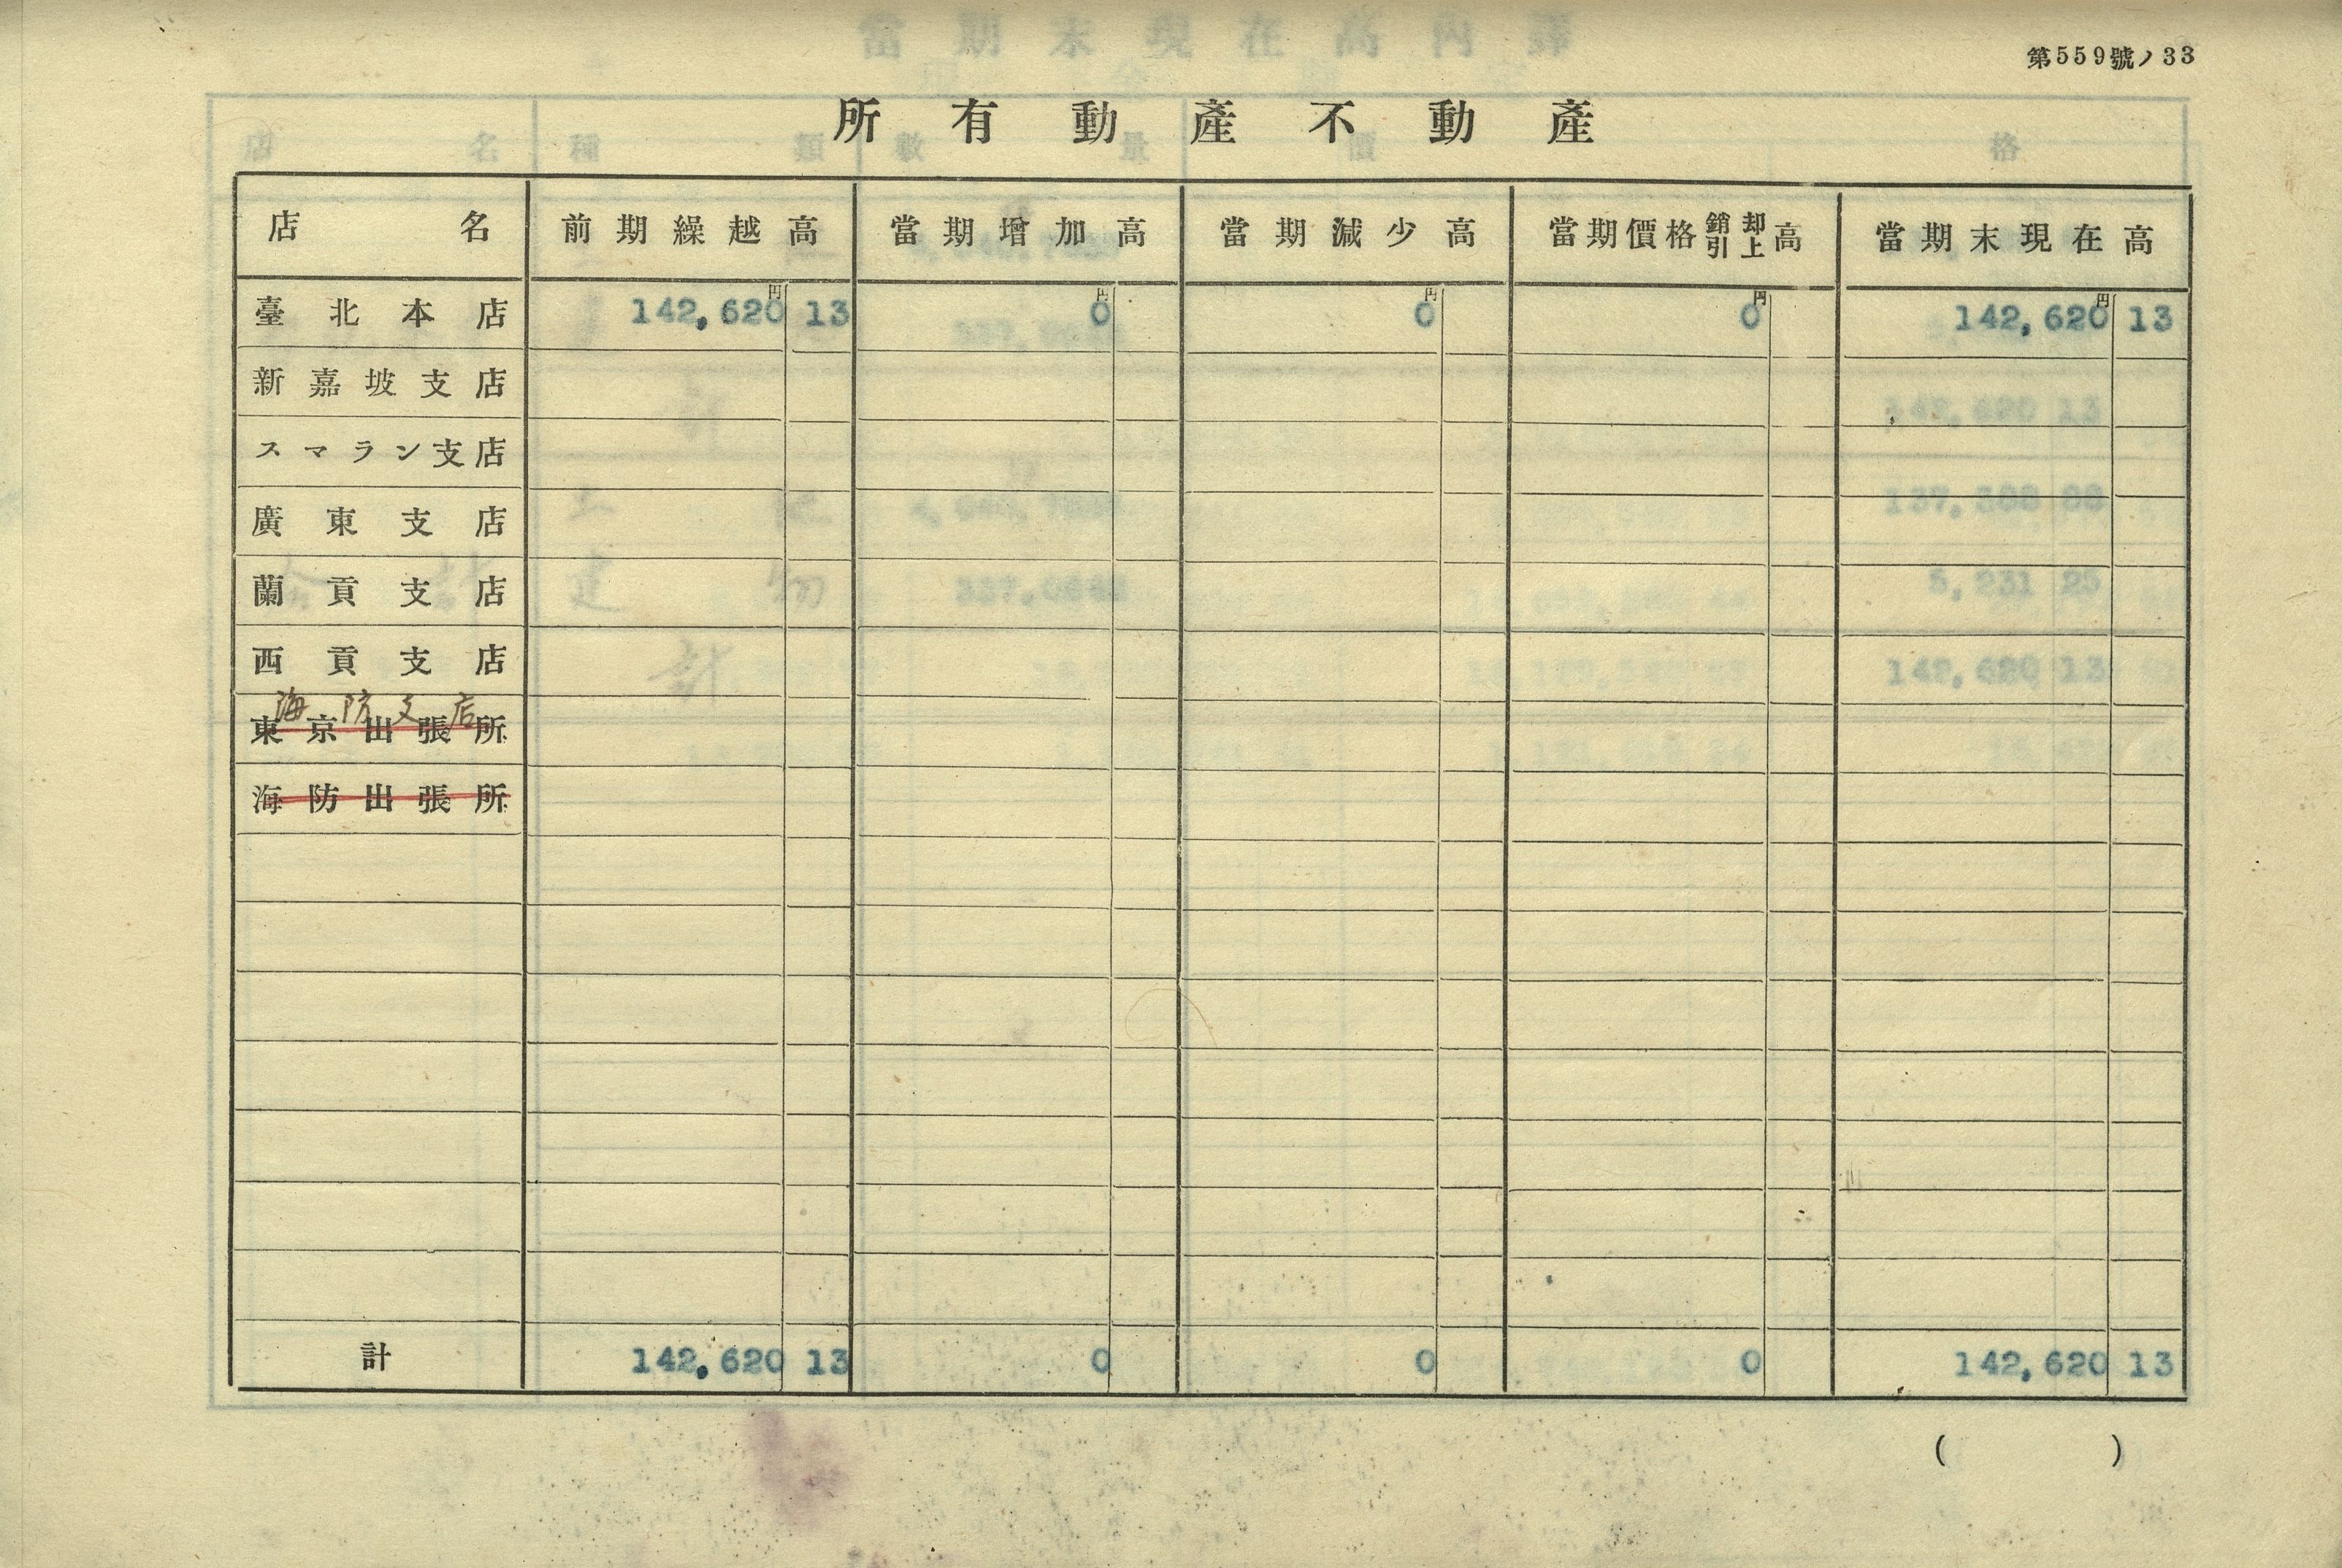 第559號ノ33
所有動產不動產
店名 前期繰越高 當期增加高 當期減少高 當期價格銷却引上高 當期末現在高
円 円 円 円 円
臺北本店 142,620 13 0 0 0 142,620 13
新嘉坡支店
スマラン支店
廣東支店
蘭貢支店
西貢支店
海防支店
東京出張所
海防出張所
計 142,620 13 0 0 0 142,620 13
( )